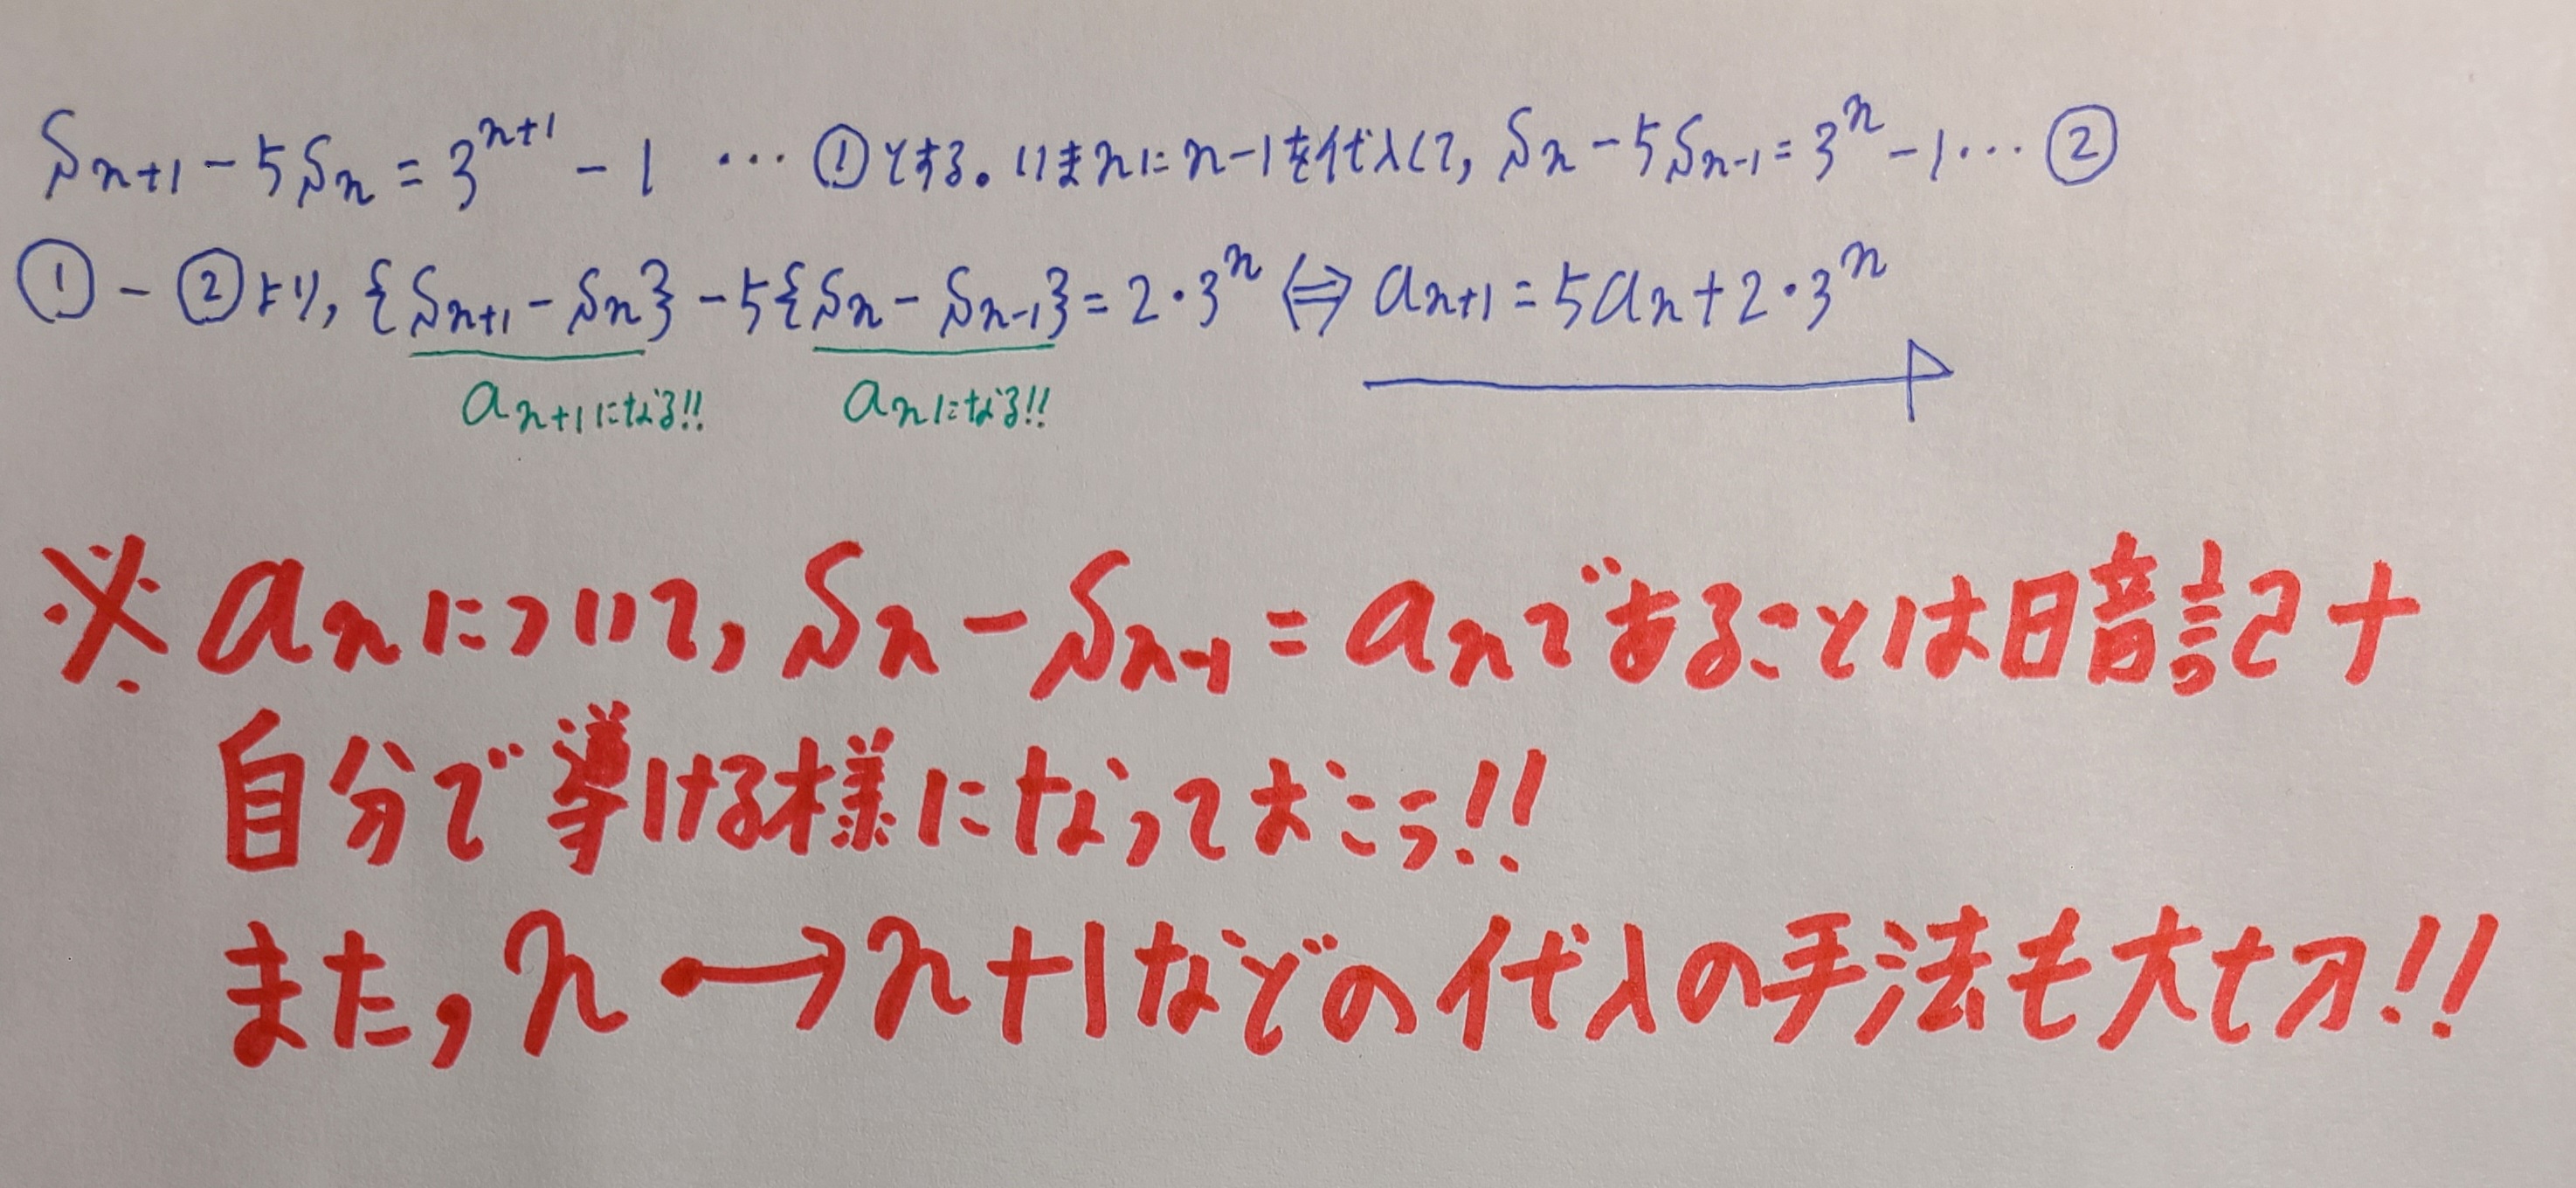 Sn+1 - 5Sn = 3^{n+1} - 1 … ①とする。いまnにn-1を代入して, Sn - 5Sn-1 = 3^n - 1 … ②
① - ②より, {Sn+1 - Sn} - 5{Sn - Sn-1} = 2・3^n ⇔ an+1 = 5an + 2・3^n
an+1になる!! anになる!!
※ anについて, Sn - Sn-1 = anであることは暗記+
自分で導ける様になっておこう!!
また, n → n+1などの代入の手法も大切!!